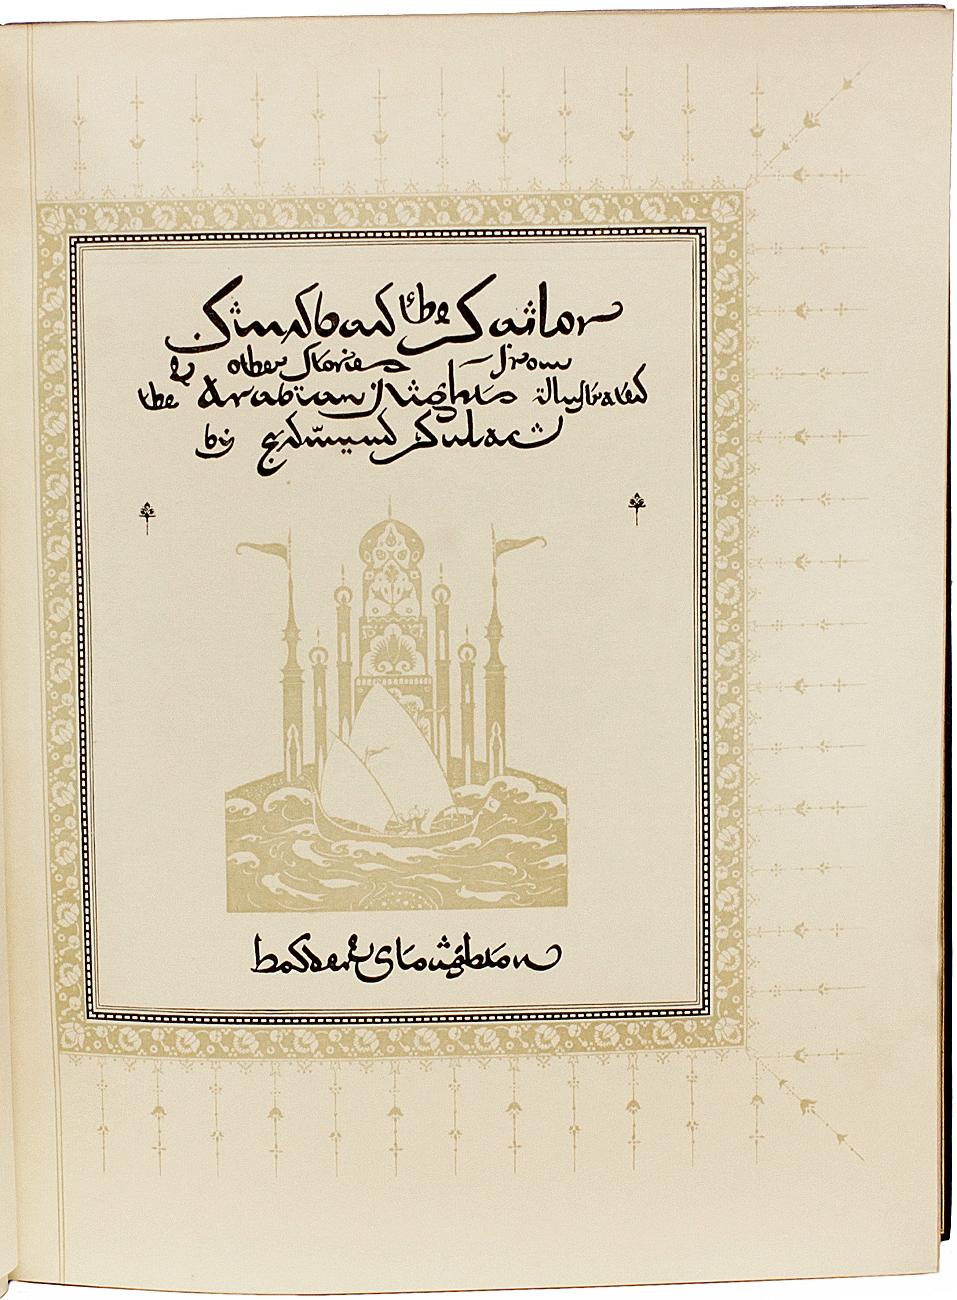 Sindbad the Sailor
& other Stories from
the Arabian Nights illustrated
by Edmund Dulac
hodder & Stoughton